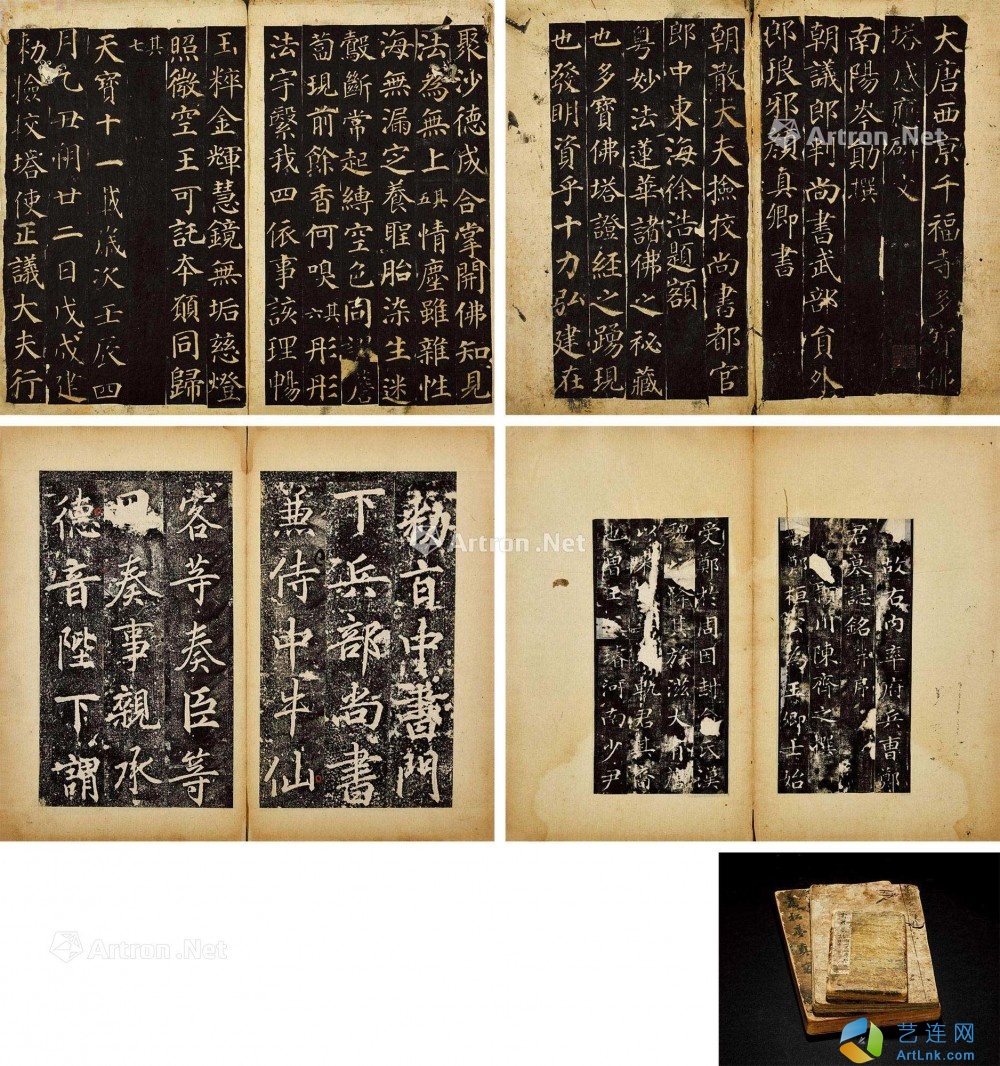 大唐西京千福寺多寶佛
塔感應碑文
南陽岑勛撰
朝議郎判尚書武部員外
郎琅邪顏真卿書
朝散大夫撿校尚書都官
郎中東海徐浩題額
粵妙法蓮華諸佛之秘藏
也多寶佛塔證經之踴現
也發明資乎十力弘建在
聚沙德成合掌開佛知見
法為無上其五情塵雖雜性
海無漏定養聖胎染生迷
鷇斷常起縛空色同謂薝
蔔現前餘香何嗅其六彤彤
法宇繫我四依事該理暢
玉粹金輝慧鏡無垢慈燈
照微空王可託本願同歸
其七
天寶十一載歲次壬辰四
月乙丑朔廿二日戊戌建
勅撿挍塔使正議大夫行
故右內率府兵曹鄭
君墓誌銘并序
川陳齊之撰
桓公為王卿士始
受鄭於周因封命氏漢
魏其族滋大前
以降軌君其裔
也曾王河南少尹
勅旨中書門
下兵部尚書
兼侍中牛仙
客等奏臣等
奏事親承
德音陛下謂
Artron.Net
Artron.Net
Artron.Net
Artron.Net
艺连网
ArtLnk.com